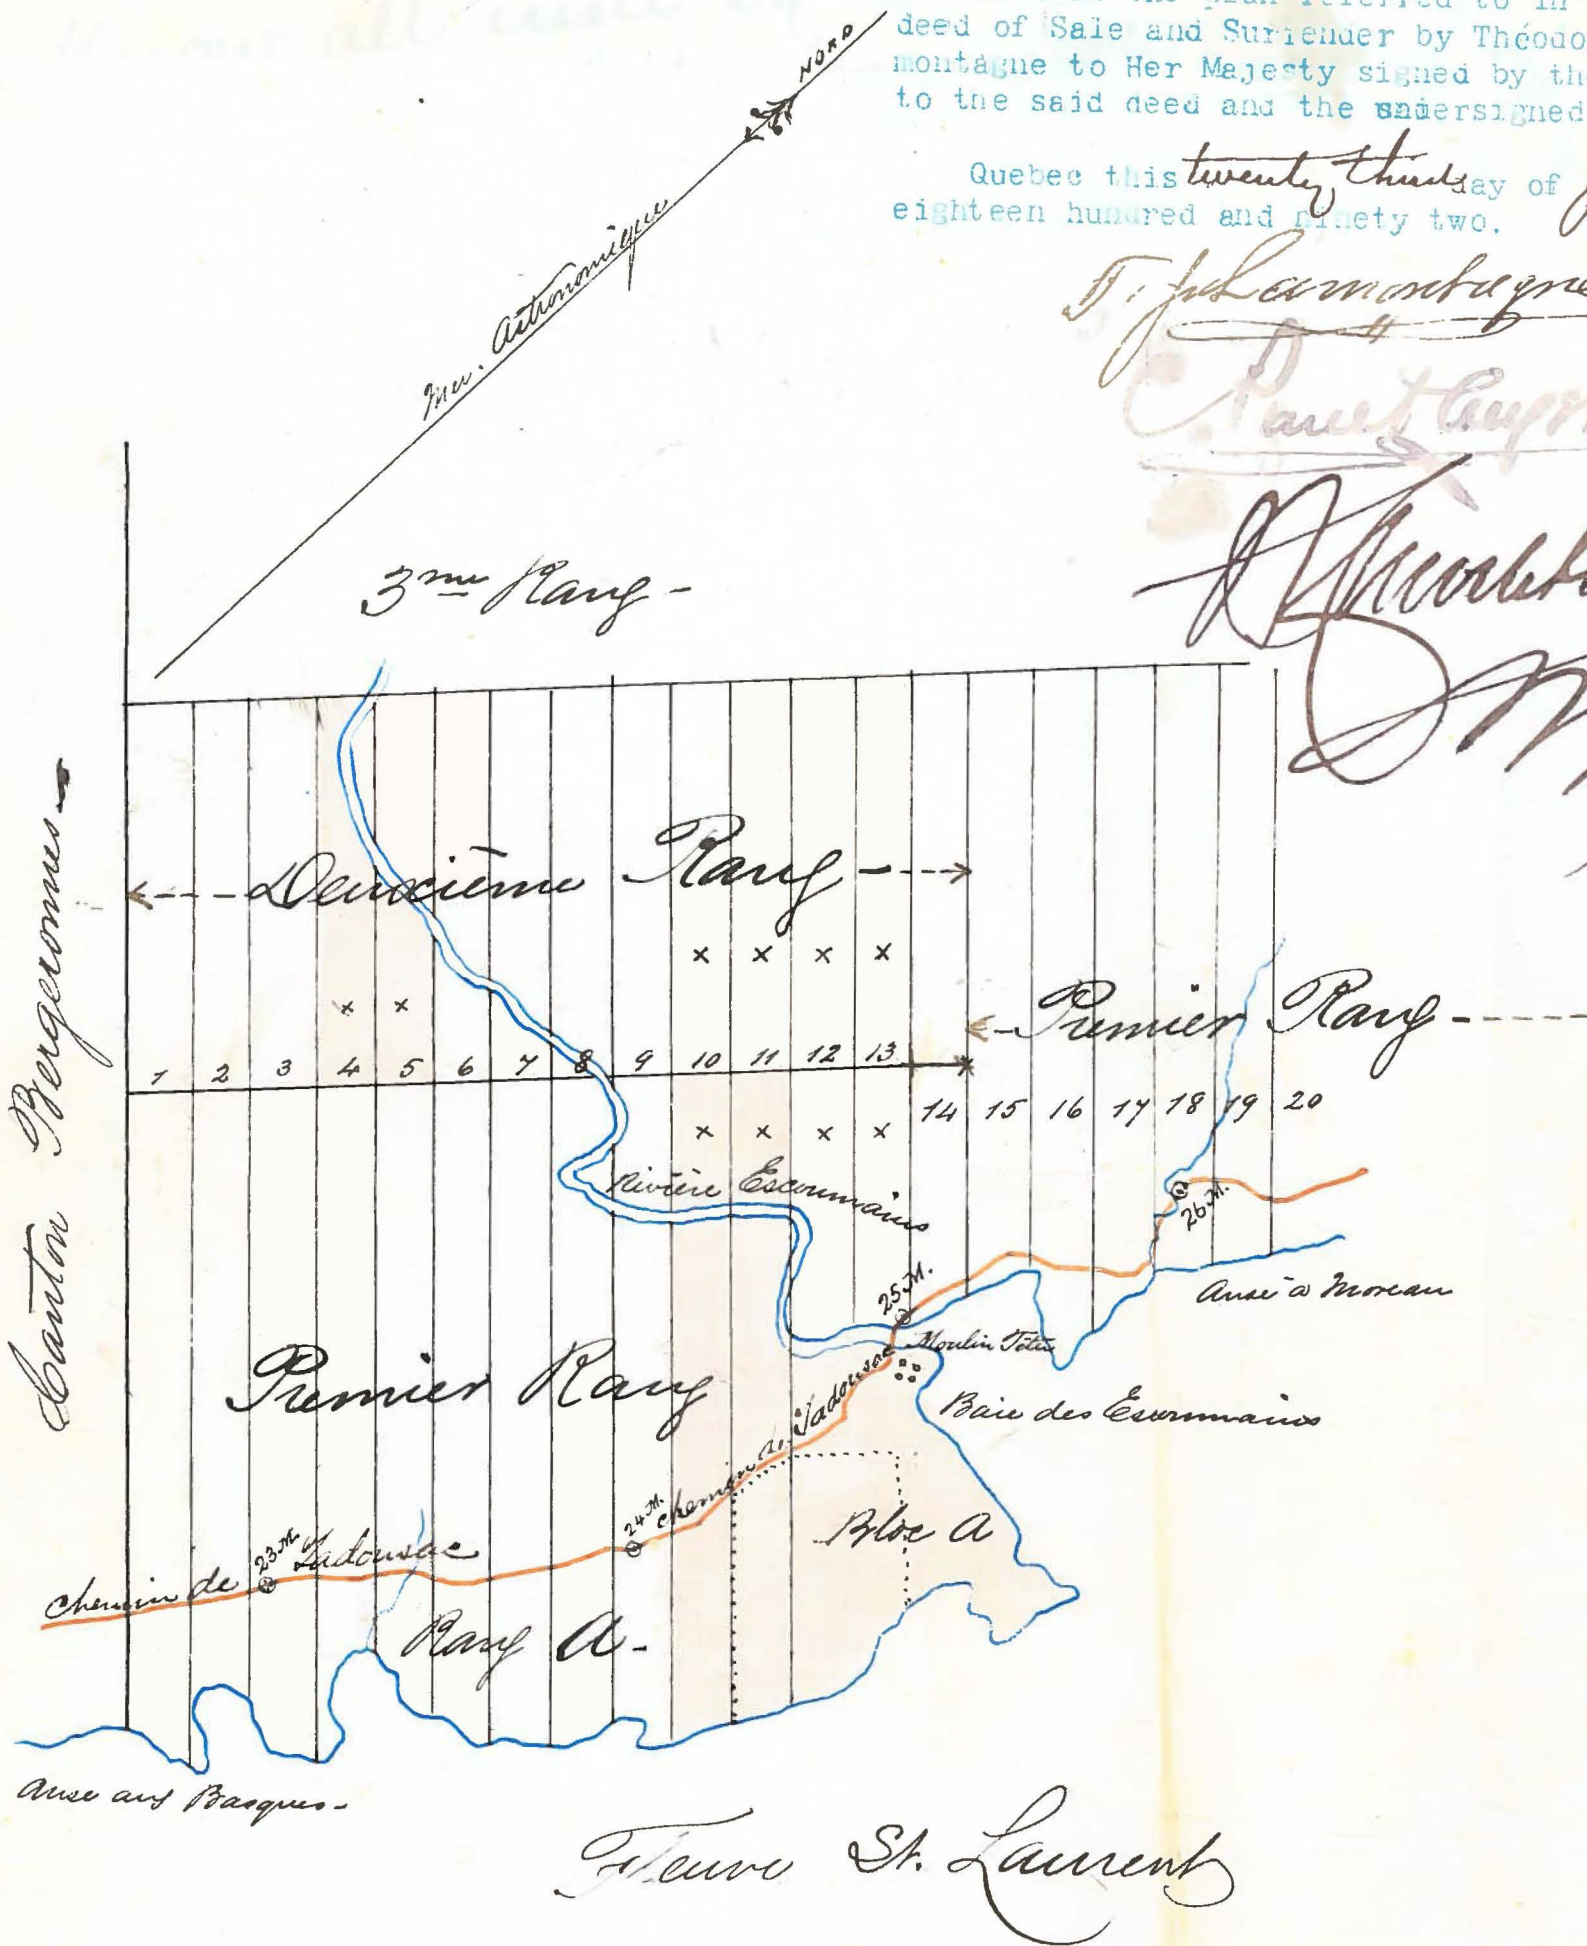 the plan referred to in
deed of Sale and Surrender by Théodo
montagne to Her Majesty signed by the
to the said deed and the undersigned
Quebec this twenty third day of
eighteen hundred and ninety two.
T. Jos Lamontagne
NORD
Mer. Astronomique
3me Rang -
Canton Bergeronnes
Deuxième Rang
x x x x
x x
Premier Rang
1 2 3 4 5 6 7 8 9 10 11 12 13
14 15 16 17 18 19 20
x x x x
Rivière Escoumains
26 M.
25 M.
Anse à Moreau
Moulin Têtu
Premier Rang
Baie des Escoumains
24 M. chemin de Tadousac
Bloc A
chemin de 23 M Tadousac
Rang A -
Anse aux Basques -
Fleuve St. Laurent